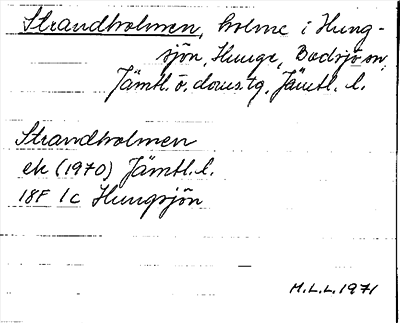 Strandholmen, holme i Hung-
sjön, Hunge, Bodsjö sn,
Jämtl. ö. doms.tg, Jämtl. l.
Strandholmen
ek (1970) Jämtl.l.
18F 1c Hungsjön
M.L.L.1971